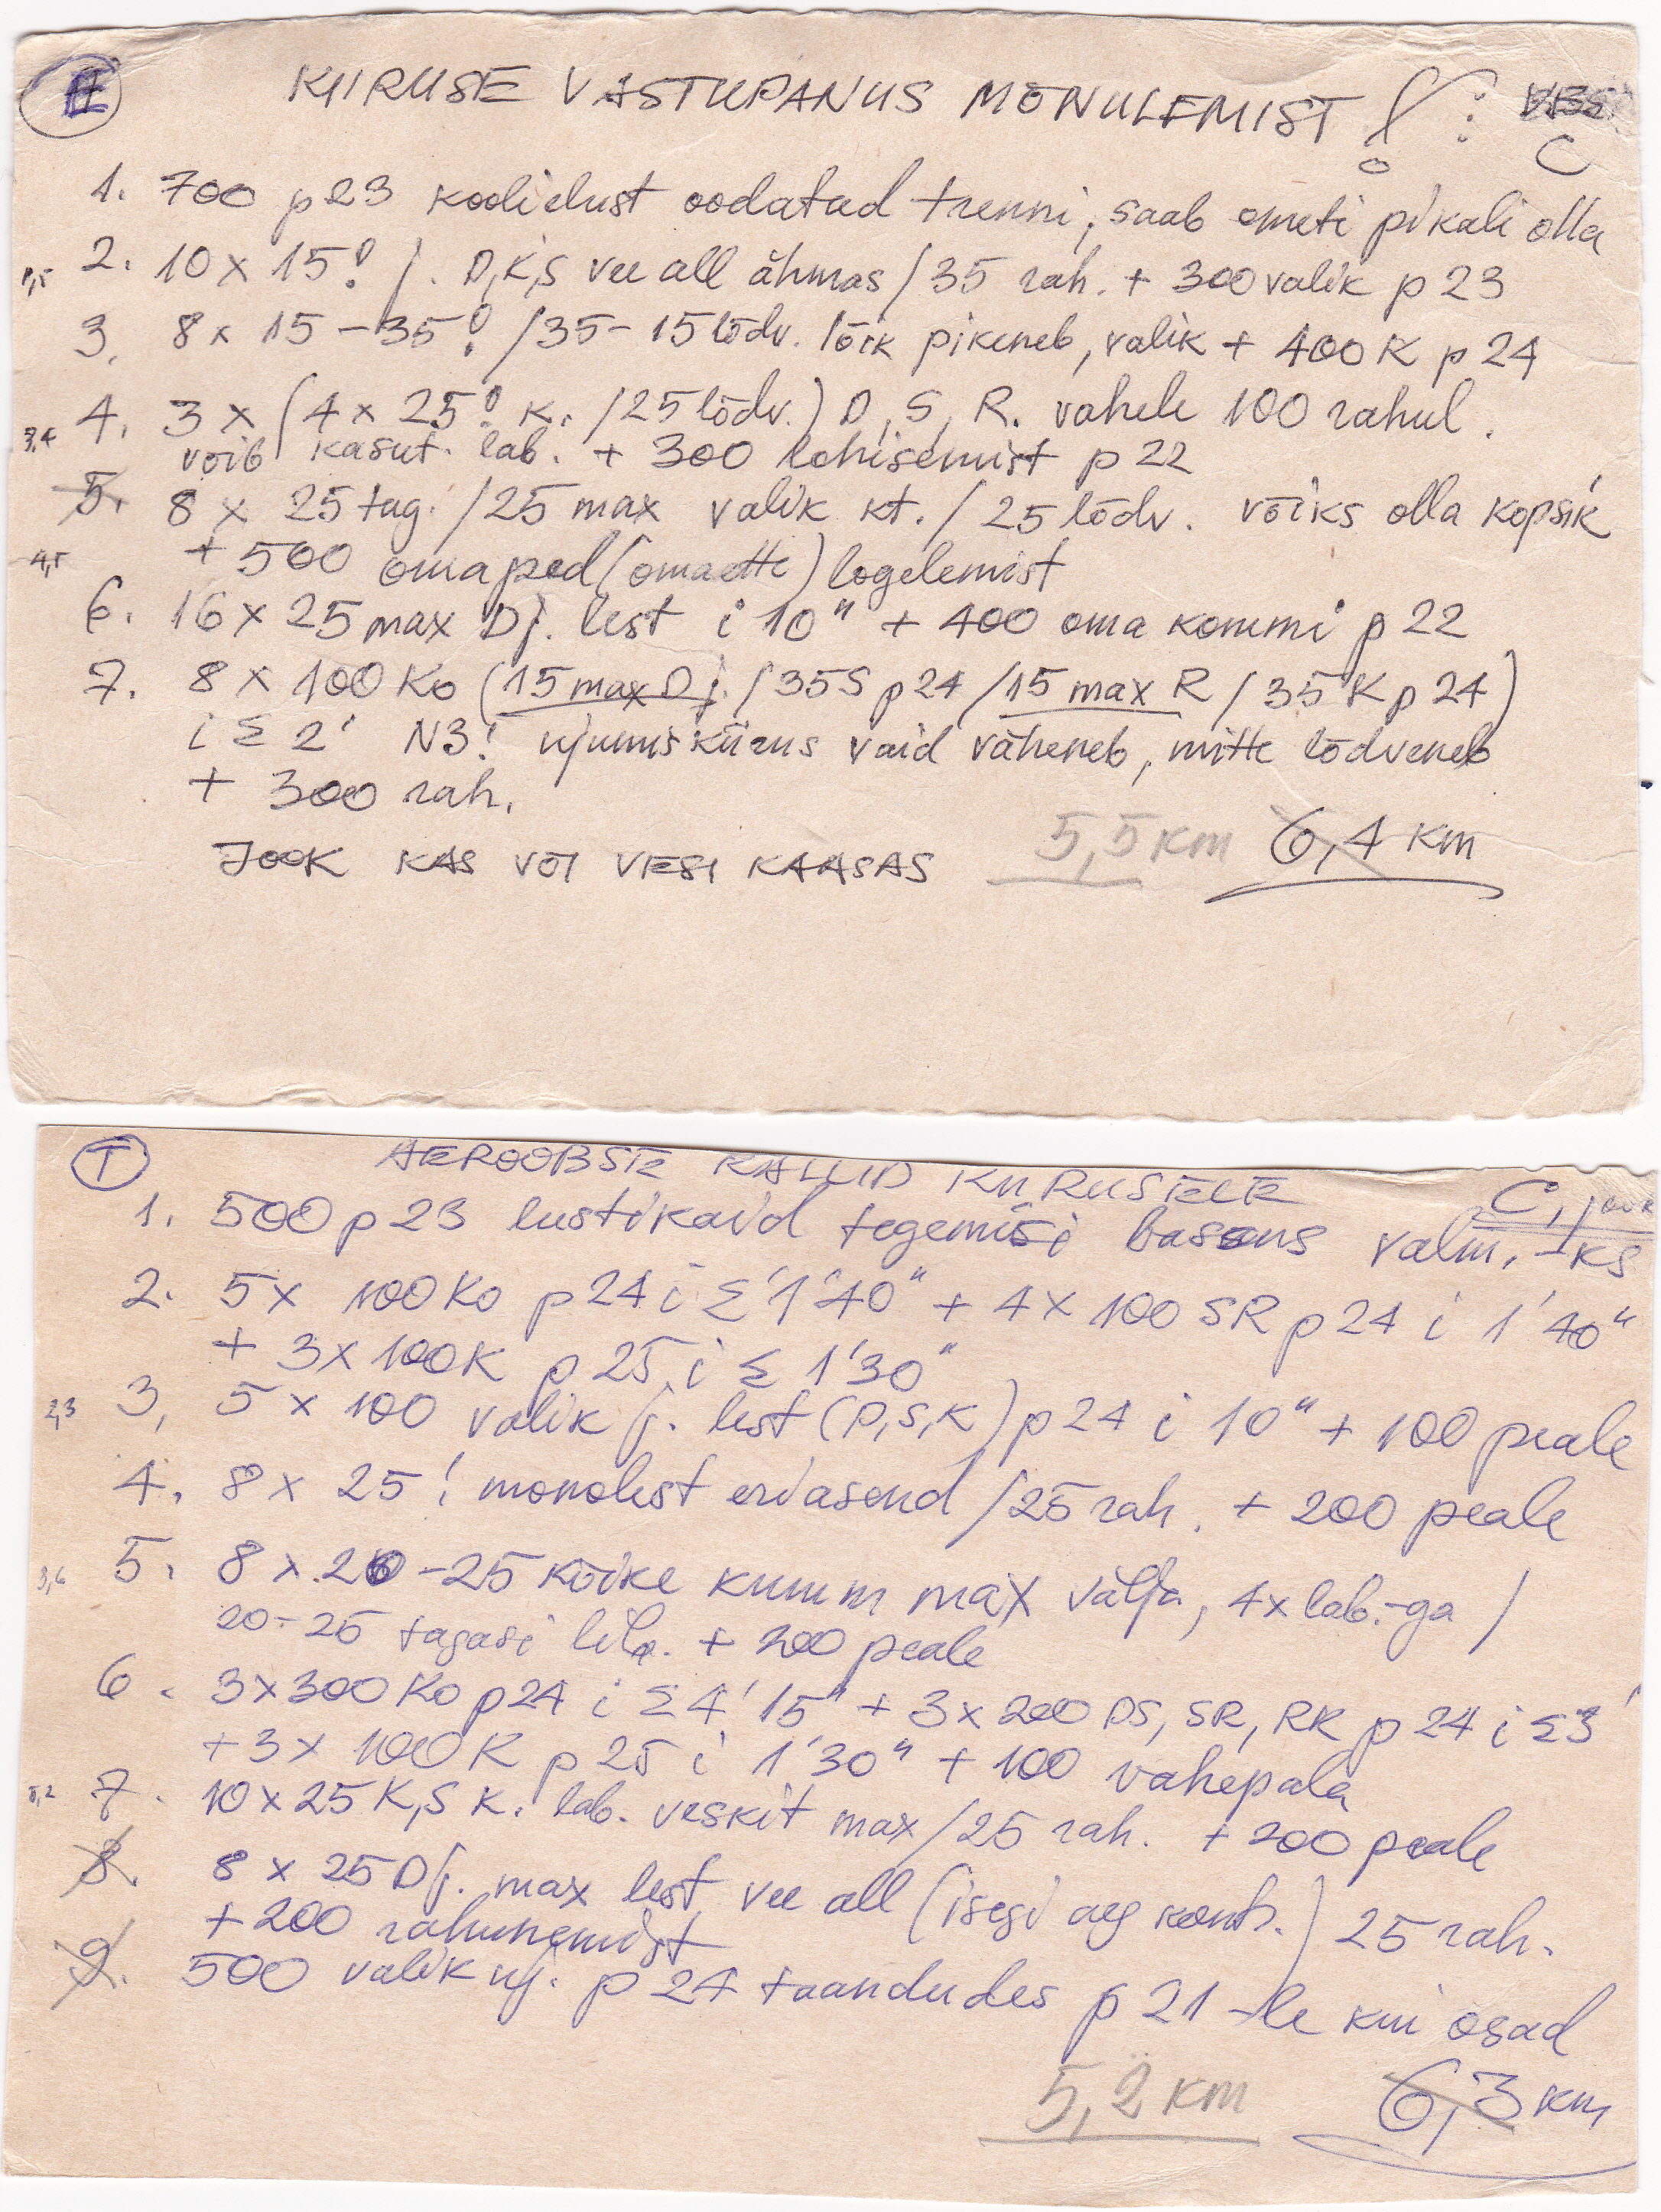 E
KIIRUSE VASTUPANUS MÕNULEMIST ! : C
1. 700 p 23 koolielust oodatud trenni, saab ometi pikali olla
2. 10 x 15! j. D,K,S vee all ähmas / 35 rah. + 300 valik p 23
1,5
3. 8 x 15 - 35! / 35 - 15 lõdv. lõik pikeneb, valik + 400 K p 24
4. 3 x (4 x 25! k. / 25 lõdv.) D, S, R. vahele 100 rahul.
3,4
võib kasut. lab. + 300 lohisemist p 22
5. 8 x 25 tag. / 25 max valik kt. / 25 lõdv. võiks olla kopsik
4,5
+ 500 omapead (omaette) logelemist
6. 16 x 25 max Dj. lest i 10" + 400 oma kommi p 22
7. 8 x 100 Ko (15 max Dj. / 35 S p 24 / 15 max R / 35 K p 24)
i Σ 2' N3! ujumiskiirus vaid väheneb, mitte lõdveneb
+ 300 rah.
5,5 km 6,4 km
JOOK KAS VÕI VESI KAASAS
T
AEROOBSTE KALLID KIIRUSTELE
C, jook
1. 500 p 23 lustikaid tegemisi basens valm. -ks
2. 5 x 100 Ko p 24 i Σ 1'40" + 4 x 100 SR p 24 i 1'40"
+ 3 x 100 K p 25 i Σ 1'30"
2,3
3. 5 x 100 valik j. lest (D,S,K) p 24 i 10" + 100 peale
4. 8 x 25! monolest eriasend / 25 rah. + 200 peale
5. 8 x 20 - 25 kõike kumm max välja, 4 x lab.-ga /
3,6
20 - 25 tagasi lib. + 200 peale
6. 3 x 300 Ko p 24 i Σ 4'15" + 3 x 200 DS, SR, RK p 24 i Σ 3'
+ 3 x 100 K p 25 i 1'30" + 100 vahepala
5,2
7. 10 x 25 K,S k. lab. veskit max / 25 rah. + 200 peale
8. 8 x 25 Dj. max lest vee all (isegi aeg kontr.) 25 rah.
+ 200 rahunemist
9. 500 valik uj. p 24 taandudes p 21 -le kui osad
5,2 km 6,3 km